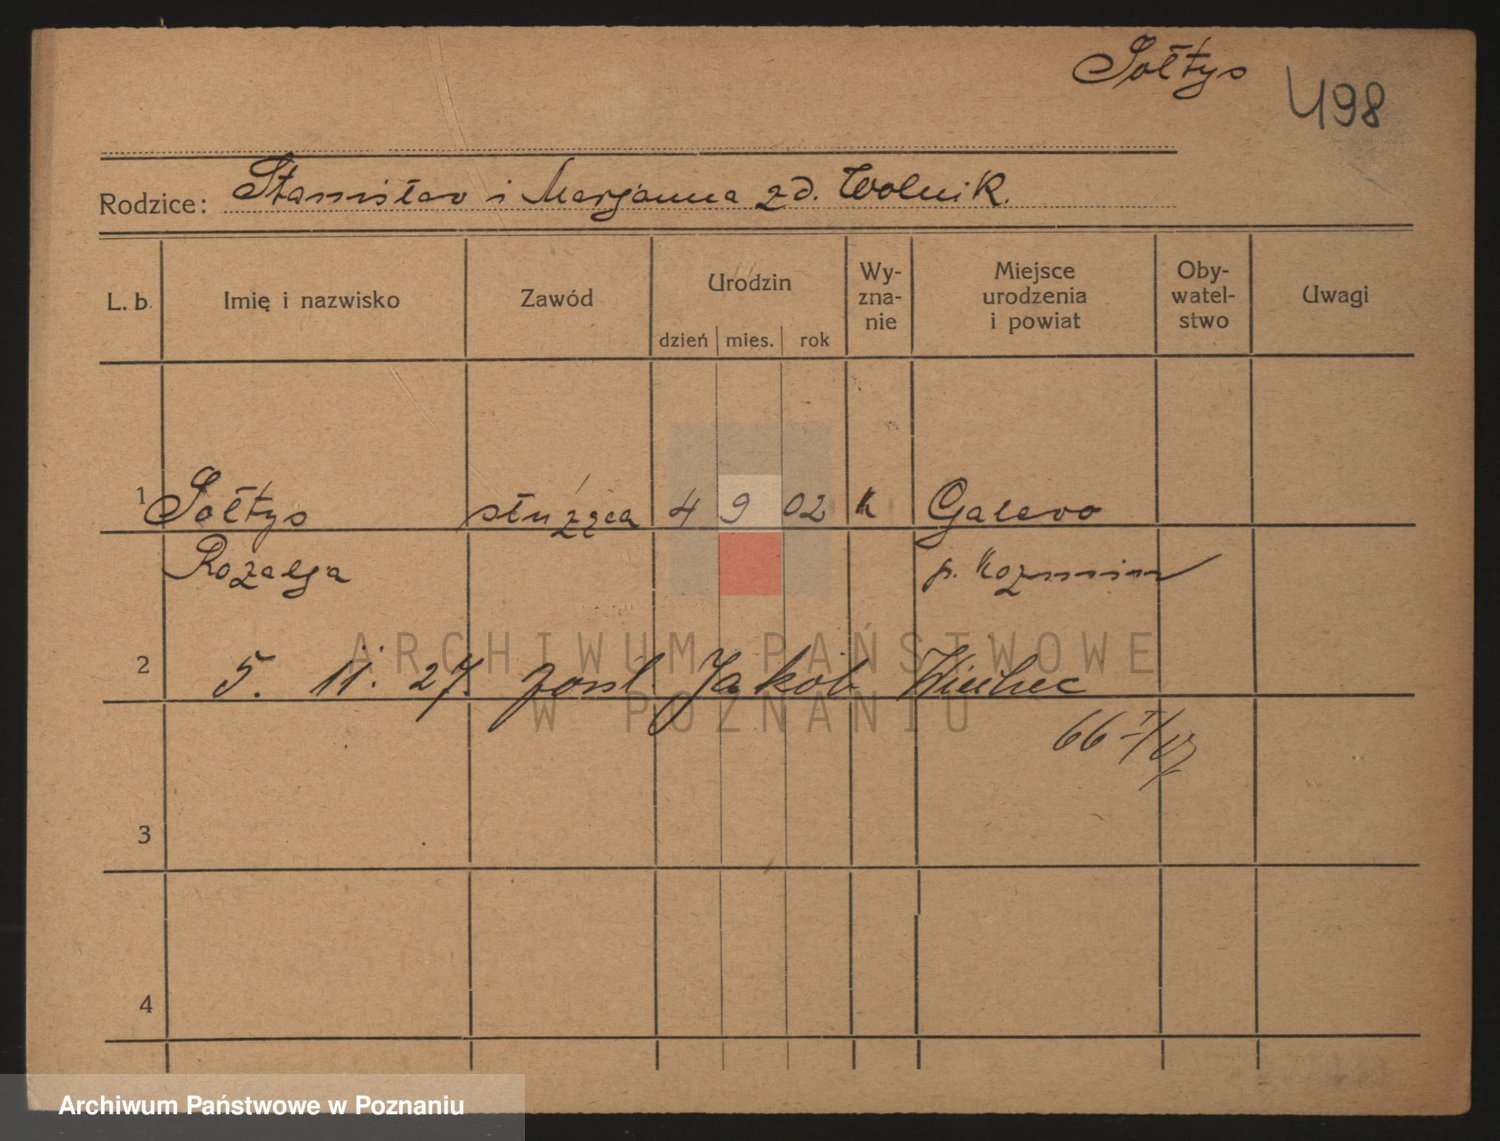 Sołtys
498
Rodzice: Stanisław i Marjanna z d. Wolnik.
L. b. Imię i nazwisko Zawód Urodzin dzień mies. rok Wy-zna-nie Miejsce urodzenia i powiat Oby-watel-stwo Uwagi
1 Sołtys służąca 4 9 02 k Galewo
Rozalja p. Kozmin
2 5. 11. 27. Jakób
66
3
4
ARCHIWUM PAŃSTWOWE
W POZNANIU
Archiwum Państwowe w Poznaniu